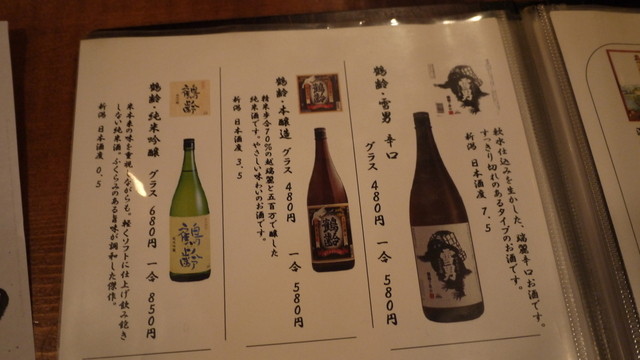 鶴齢・雪男 辛口
グラス 480円 一合 580円
軟水仕込みを生かした、端麗辛口お酒です。
すっきり切れのあるタイプのお酒です。
新潟 日本酒度 7.5
雪男
鶴齢・本醸造 グラス 480円 一合 580円
精米歩合70%の越端麗と五百万で醸した
純米酒です。やさしい味わいのお酒です。
新潟 日本酒度 3.5
鶴齢
鶴齢・純米吟醸 グラス 680円 一合 850円
米本来の味を重視しながらも、軽くソフトに仕上げ飲み飽き
しない純米酒。ふくらみのある旨味が調和した傑作。
新潟 日本酒度 0.5
鶴齢